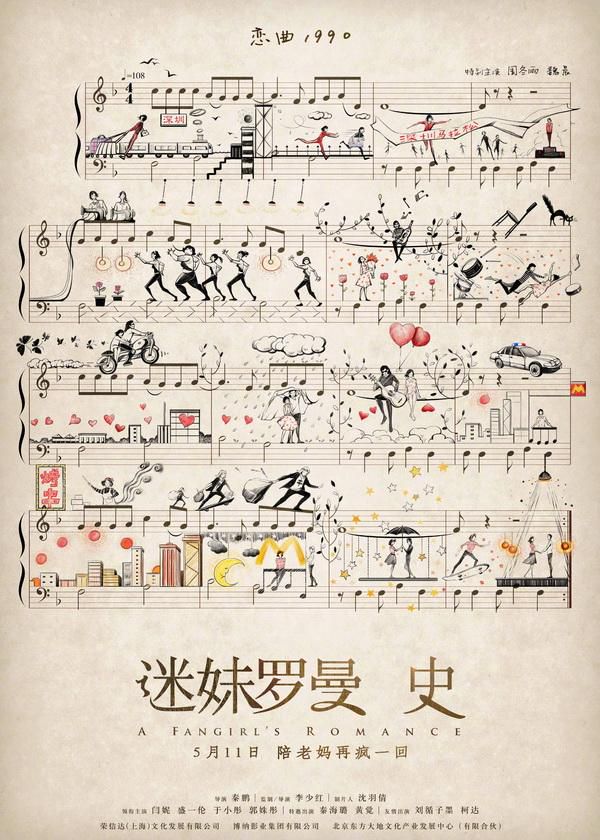 恋曲1990
特别主演 周冬雨 魏晨
♩=108
4
4
深圳
深圳马拉松
M
迷妹罗曼 史
A FANGIRL'S ROMANCE
5月11日 陪老妈再疯一回
导演 秦鹏 | 监制/导演 李少红 | 制片人 沈羽倩
领衔主演 闫妮 盛一伦 于小彤 郭姝彤 | 特邀出演 秦海璐 黄觉 | 友情出演 刘循子墨 柯达
荣信达(上海)文化发展有限公司 博纳影业集团有限公司 北京东方大地文化产业发展中心(有限合伙)